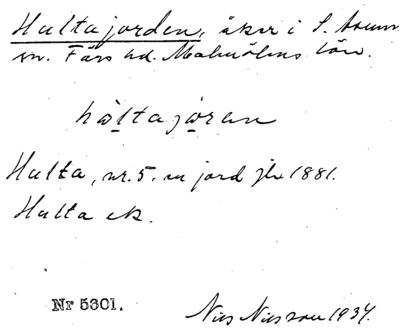 Hultajorden, åker i S. Åsum
sn. Färs hd. Malmöhus län.
hòltajo̱ren
Hulta, nr. 5. en jord jfr 1881.
Hulta ek.
Nr 5301. Nils Nilsson 1934.